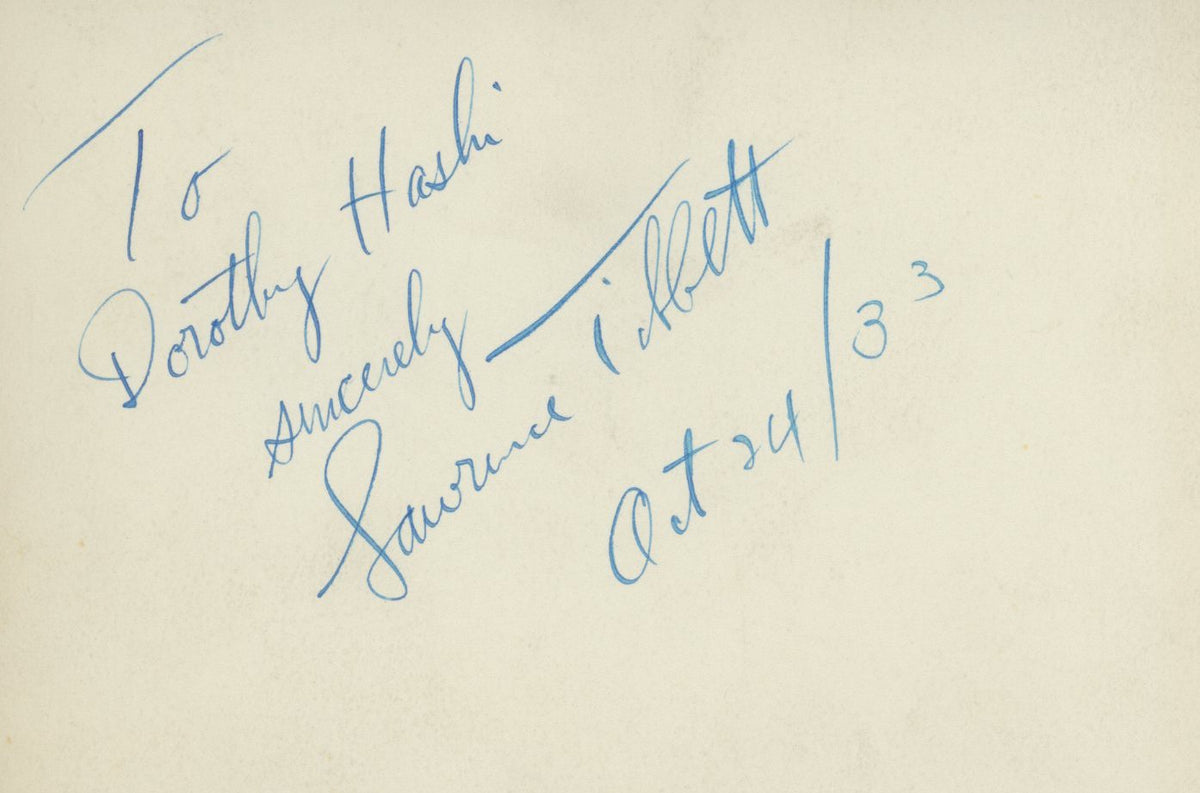 To
Dorothy Hashi
sincerely
Lawrence Tibbett
Oct 24/33